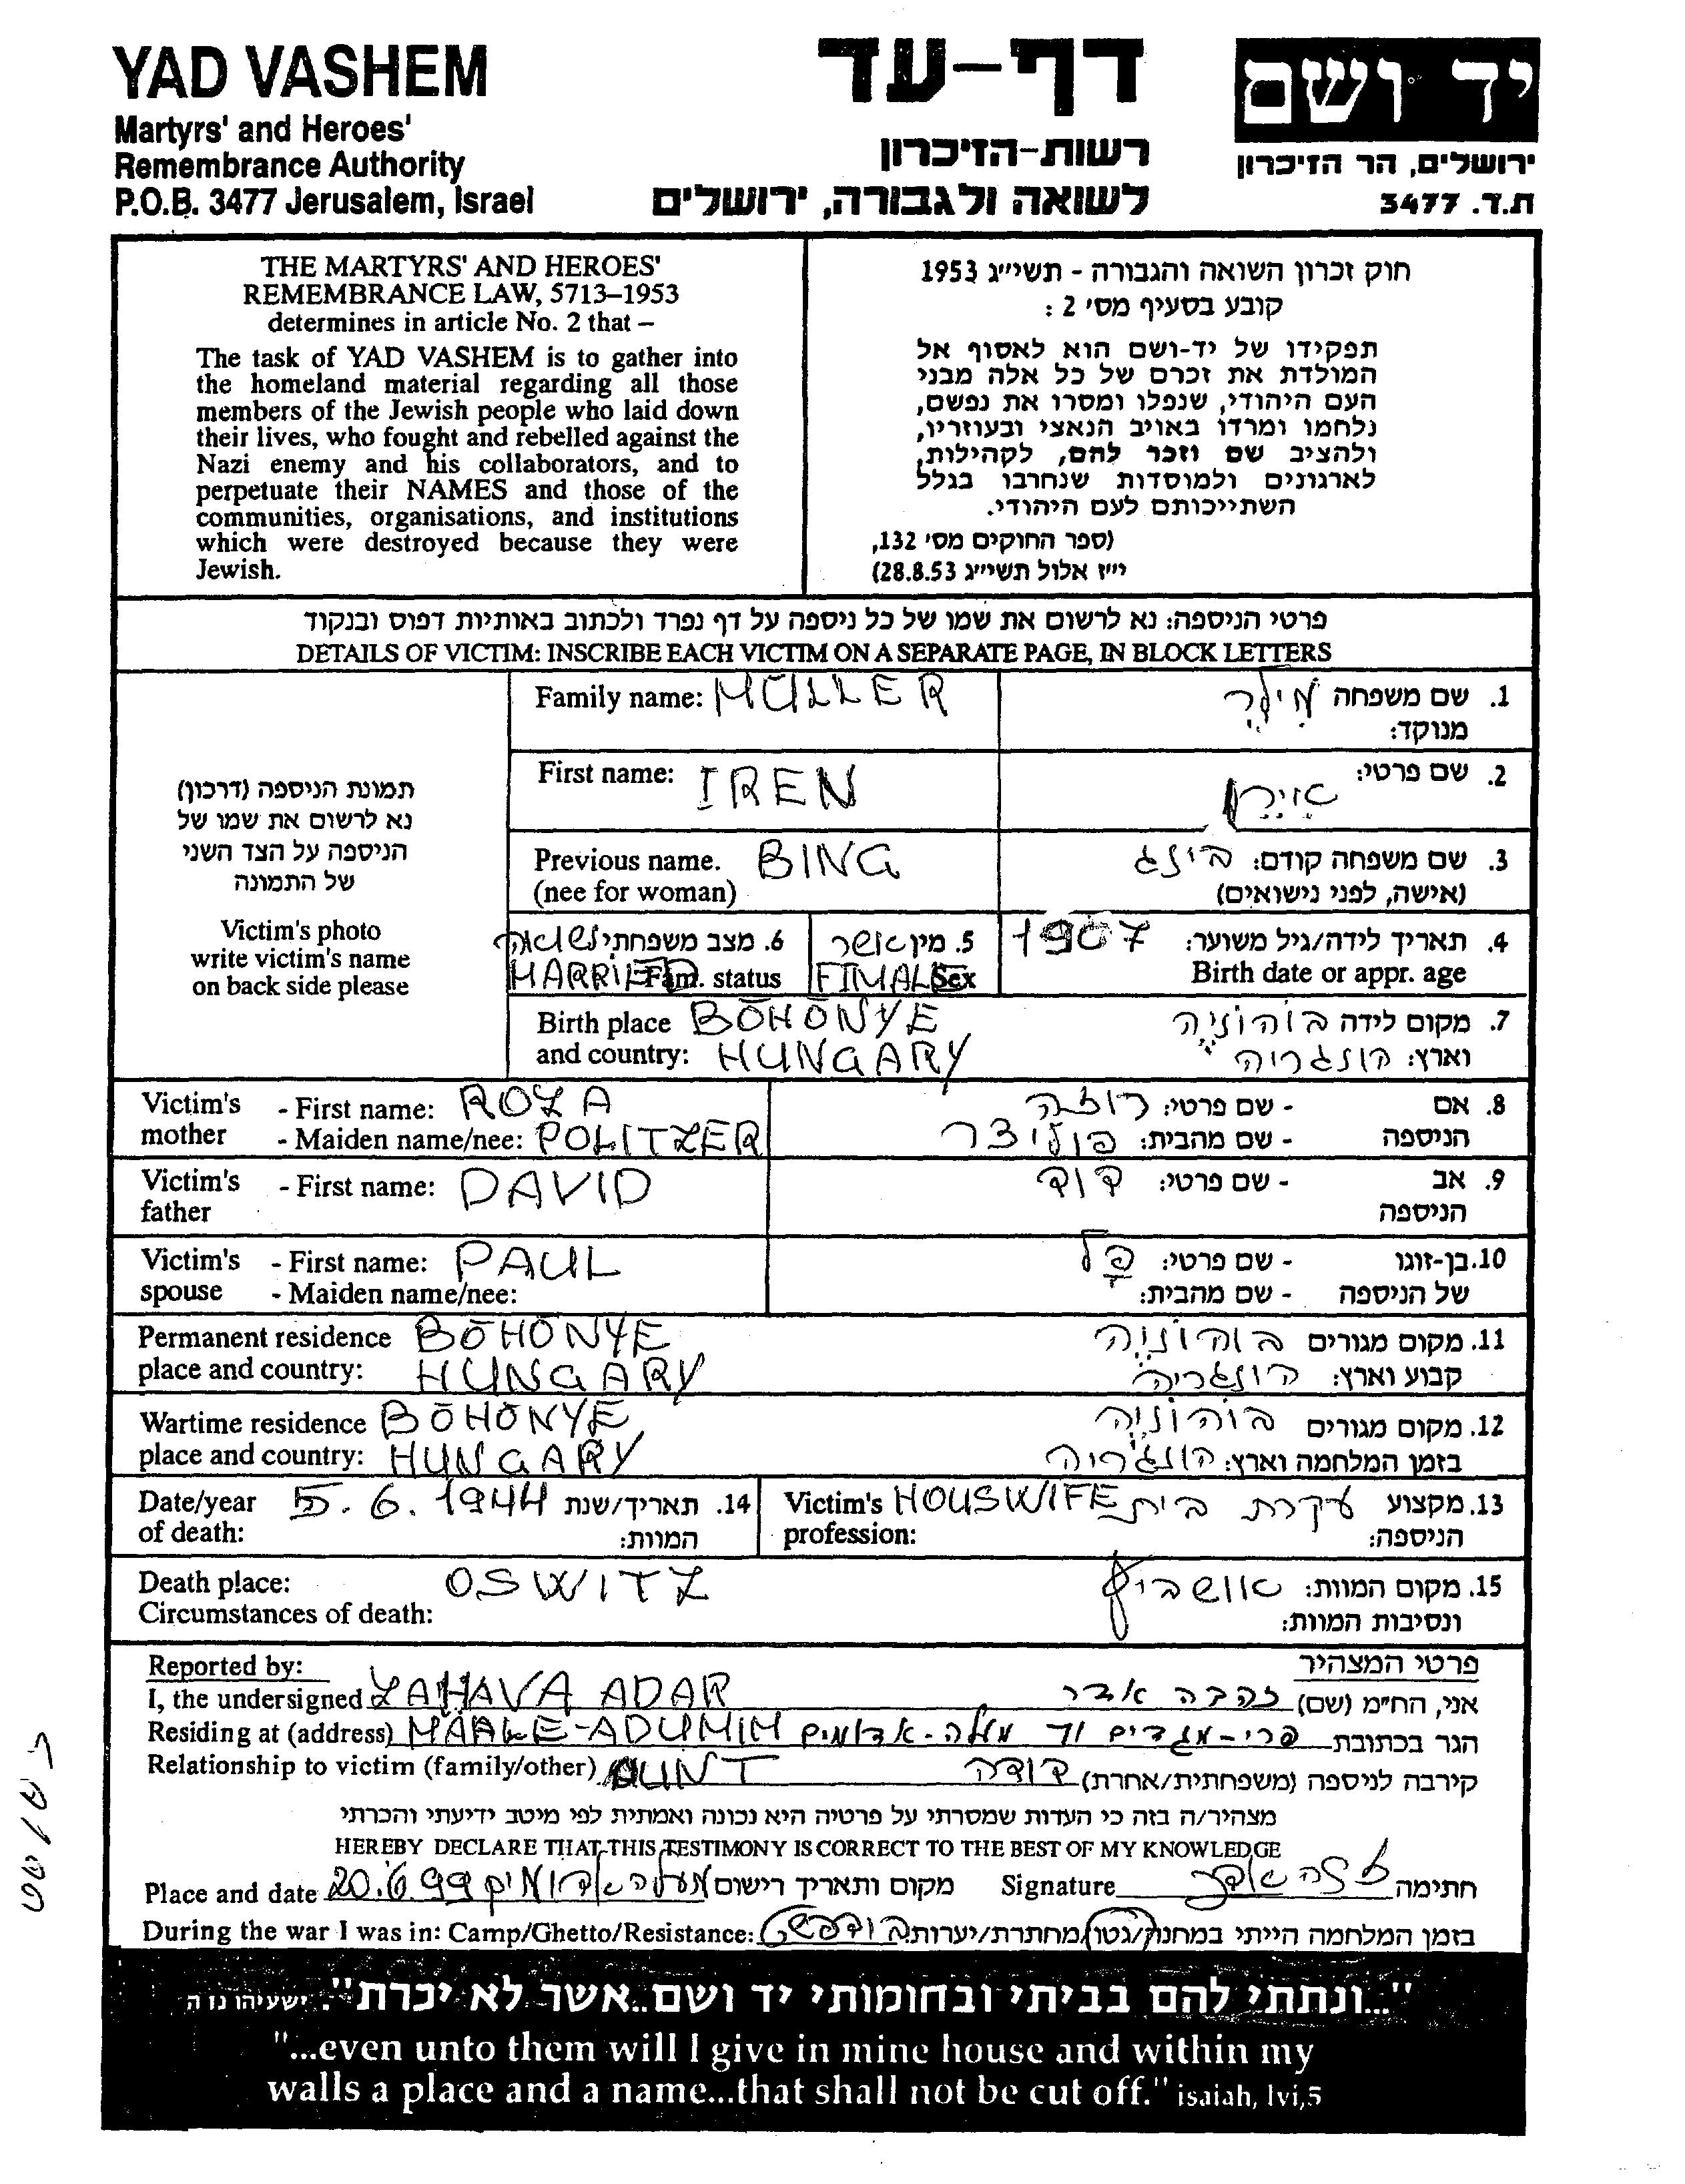 YAD VASHEM
Martyrs' and Heroes'
Remembrance Authority
P.O.B. 3477 Jerusalem, Israel
דף-עד
רשות-הזיכרון
לשואה ולגבורה, ירושלים
יד ושם
ירושלים, הר הזיכרון
ת.ד. 3477
THE MARTYRS' AND HEROES'
REMEMBRANCE LAW, 5713–1953
determines in article No. 2 that –
The task of YAD VASHEM is to gather into
the homeland material regarding all those
members of the Jewish people who laid down
their lives, who fought and rebelled against the
Nazi enemy and his collaborators, and to
perpetuate their NAMES and those of the
communities, organisations, and institutions
which were destroyed because they were
Jewish.
חוק זכרון השואה והגבורה - תשי״ג 1953
קובע בסעיף מס׳ 2 :
תפקידו של יד-ושם הוא לאסוף אל
המולדת את זכרם של כל אלה מבני
העם היהודי, שנפלו ומסרו את נפשם,
נלחמו ומרדו באויב הנאצי ובעוזריו,
ולהציב שם וזכר להם, לקהילות,
לארגונים ולמוסדות שנחרבו בגלל
השתייכותם לעם היהודי.
(ספר החוקים מס׳ 132,
י״ז אלול תשי״ג 28.8.53)
פרטי הניספה: נא לרשום את שמו של כל ניספה על דף נפרד ולכתוב באותיות דפוס ובנקוד
DETAILS OF VICTIM: INSCRIBE EACH VICTIM ON A SEPARATE PAGE, IN BLOCK LETTERS
תמונת הניספה (דרכון)
נא לרשום את שמו של
הניספה על הצד השני
של התמונה
Victim's photo
write victim's name
on back side please
Family name: MÜLLER
1. שם משפחה מילר
מנוקד:
First name: IREN
2. שם פרטי: אירן
Previous name. BING
(nee for woman)
3. שם משפחה קודם: בינג
(אישה, לפני נישואים)
6. מצב משפחתי נשואה
MARRIED Fam. status
5. מין אשה
FIMALE Sex
4. תאריך לידה/גיל משוער: 1907
Birth date or appr. age
Birth place BÖHÖNYE
and country: HUNGARY
7. מקום לידה בוהוניה
וארץ: הונגריה
Victim's - First name: ROZA
mother - Maiden name/nee: POLITZER
8. אם - שם פרטי: רוזה
הניספה - שם מהבית: פוליצר
Victim's - First name: DAVID
father
9. אב - שם פרטי: דוד
הניספה
Victim's - First name: PAUL
spouse - Maiden name/nee:
10. בן-זוגו - שם פרטי: פל
של הניספה - שם מהבית:
Permanent residence BÖHÖNYE
place and country: HUNGARY
11. מקום מגורים בוהוניה
קבוע וארץ: הונגריה
Wartime residence BÖHÖNYE
place and country: HUNGARY
12. מקום מגורים בוהוניה
בזמן המלחמה וארץ: הונגריה
Date/year 5.6.1944 14. תאריך/שנת
of death: המוות:
Victim's HOUSWIFE עקרת בית 13. מקצוע
profession: הניספה:
Death place: OSWITZ
Circumstances of death:
15. מקום המוות: אושביץ
ונסיבות המוות:
Reported by: פרטי המצהיר
I, the undersigned ZAHAVA ADAR אני, החי״מ (שם) זהבה אדר
Residing at (address) MAALE-ADUMIM הגר בכתובת פרי-מגדים מעלה-אדומים
Relationship to victim (family/other) AUNT קירבה לניספה (משפחתית/אחרת) דודה
מצהיר/ה בזה כי העדות שמסרתי על פרטיה היא נכונה ואמתית לפי מיטב ידיעתי והכרתי
HEREBY DECLARE THAT THIS TESTIMONY IS CORRECT TO THE BEST OF MY KNOWLEDGE
Place and date 20.6.99 מעלה אדומים מקום ותאריך רישום Signature זהבה אדר חתימה
During the war I was in: Camp/Ghetto/Resistance: בודפשט בזמן המלחמה הייתי במחנה/גטו/מחתרת/יערות
"...ונתתי להם בביתי ובחומותי יד ושם...אשר לא יכרת". ישעיהו נו ה
"...even unto them will I give in mine house and within my
walls a place and a name...that shall not be cut off." isaiah, lvi,5